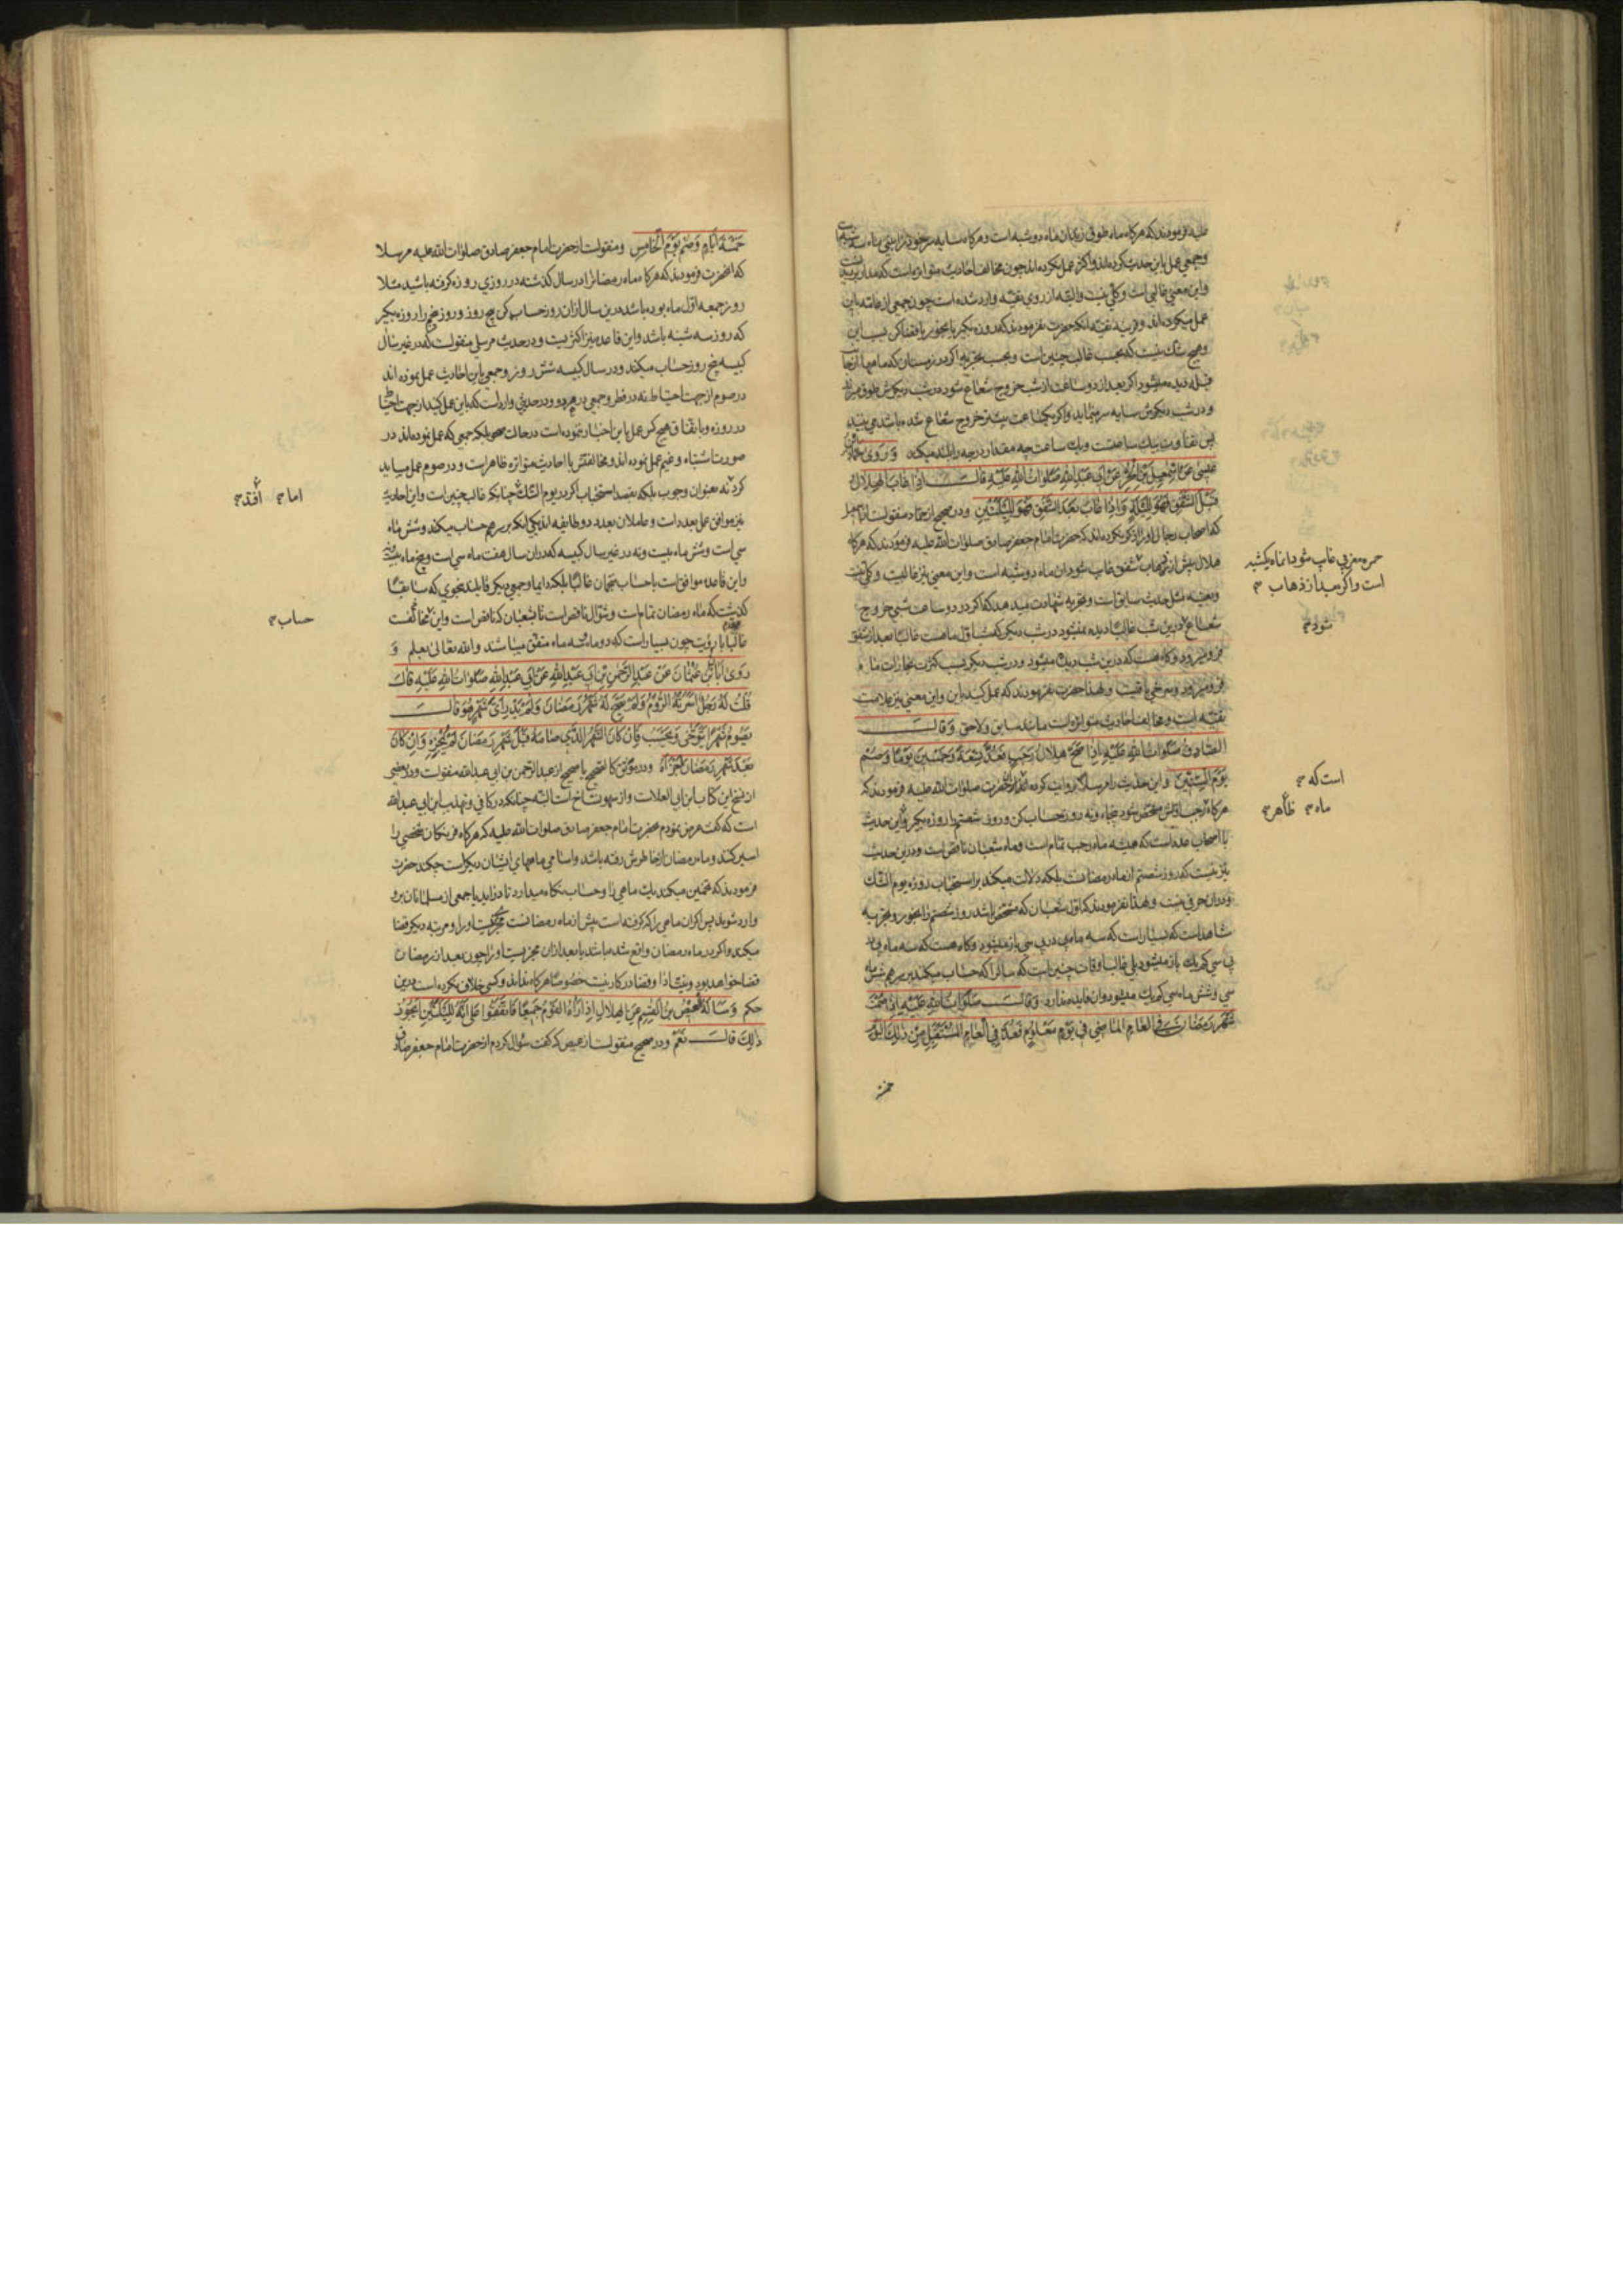 عليه فرمودند که هرکاه ماه طوقی زندان ماه دوشبه است و هرکاه سایه سرخود را بینی ماه سه شبه است
وجمعی عمل باین حدیث کرده‌اند واکثر عمل نکرده‌اند چون مخالف احادیث متواتره است که مدار برؤیتست
واین معنی غالبی است وکلی نیست والبته از روی تقیه وارد شده است چون جمعی از عامه باین
عمل میکرده‌اند وقرینه تقیه انکه حضرت نفرمودند که روزه بکیر یا بخور یا قضا کن بسبب این
وهیچ شک نیست که بحسب غالب چنین است وبحسب تجربه اکر در زمستان که ماهها
قبله دیده میشود اکر بعد از دو ساعت از شب خروج شعاع شود در شب دیکرش طوق
ودر شب دیکرش سایه سر مینماید واکر یکساعت بیشتر خروج شعاع شده باشد می‌بینند
پس تفاوت بیک ساعتست ویک ساعت چه مقدار درجه را بلند میکند وَرَوی حَمّادُ بنُ
عیسی عَن اِسمٰعیلَ بنِ الحُرِّ عَن اَبی عَبدِاللهِ صَلَواتُ اللهِ عَلَیهِ قالَ اِذا غابَ الهِلالُ
قَبلَ الشَّفَقِ فَهُوَ لِلَیلَةٍ وَاِذا غابَ بَعدَ الشَّفَقِ فَهُوَ لِلَیلَتَینِ ودر صحیح از حماد منقولست از اسمعیل
که اصحاب رجال او را ذکر نکرده‌اند که حضرت امام جعفر صادق صلوات الله علیه فرمودند که هرکاه
هلال پیش از ذهاب شفق غایب شود ان ماه دوشبه است واین معنی نیز غالبیت وکلی نیست
وبعینه مثل حدیث سابق است وتجربه شهادت میدهد که اکر در دو ساعت شبی خروج
شعاع در این شب غالبا دیده نمیشود در شب دیکر که شب اول ماهست غالبا بعد از شفق
فرو میرود وکاه هست که درین شب دیده میشود ودر شب دیکر بسبب کثرت بخارات ماه
فرو میرود وسرخی باقیست ولهذا حضرت نفرمودند که عمل کنید باین واین معنی نیز علامت
تقیّه است ومخالف احادیث متواتره است مانند سابق ولاحق وَقالَ
الصّادِقُ صَلَواتُ اللهِ عَلَیهِ اِذا صَحَّ هِلالُ رَجَبٍ فَعُدَّ تِسعَةً وَخَمسینَ یَومًا وَصُم
یَومَ السِّتّینَ واین حدیث را مرسلا روایت کرده‌اند از حضرت صلوات الله علیه فرمودند که
هرکاه رجب اولش مشخص شود پنجاه ونه روز حساب کن وروز شصتم را روزه بکیر واین حدیث
با اصحاب عدد است که همیشه ماه رجب تمام است وماه شعبان ناقص است ودرین حدیث
نیز نیست که روز شصتم از ماه رمضانست بلکه دلالت میکند بر استحباب روزه یوم الشک
ودران حرفی نیست ولهذا نفرمودند که اول شعبان که مشخص باشد روز شصتم را بخور وتجربه
شاهد است که بسیار است که سه ماه پی در پی سی باز میشود وکاه هست که سه ماه پی در
پی سی کم یک باز میشود بلی غالب اوقات چنین است که سالرا که حساب میکنند بر سر هم شش ماه
سی وشش ماه سی کم یک میشود وان فایده ندارد وَقالَ صَلَواتُ اللهِ عَلَیهِ اِذا صُمتَ
شَهرَ رَمَضانَ فِی العامِ الماضی فی یَومٍ مَعلومٍ فَعُدَّ فِی العامِ المُستَقبِلِ مِن ذٰلِکَ الیَومِ
خمسة
حمره مغربی غایب شود ان ماه یکشبه
است واکر بعد از ذهاب
شود
است که
ماه ظاهر
خَمسَةَ اَیّامٍ وَصُم یَومَ الخامِسِ ومنقولست از حضرت امام جعفر صادق صلوات الله علیه مرسلا
که انحضرت فرمودند که هرکاه ماه رمضانرا در سال کذشته در روزی روزه کرفته باشید مثلا
روز جمعه اول ماه بوده باشد درین سال ازان روز حساب کن پنج روز وروز پنجم را روزه بکیر
که روز سه شنبه باشد واین قاعده نیز اکثریست ودر حدیث مرسلی منقولست که در غیر سال
کبیسه پنج روز حساب میکند ودر سال کبیسه شش روز وجمعی باین احادیث عمل نموده‌اند
در صوم از جهت احتیاط نه در فطر وجمعی در هر دو ودر حدیثی وارد است که باین عمل کنید از جهت احتیاط
در روزه وباتفاق هیچ کس عمل باین اخبار ننموده است در حالت صحو بلکه جمعی که عمل نموده‌اند در
صورت اشتباه وغیم عمل نموده‌اند ومخالفتش با احادیث متواتره ظاهر است ودر صوم عمل میباید
کرد نه بعنوان وجوب بلکه بقصد استحباب اکر در یوم الشک چنانکه غالب چنین است واین احادیث
نیز موافق عمل بعدد است وعاملان بعدد دو طایفه‌اند یکی انکه بر سر هم حساب میکنند وشش ماه
سی است وشش ماه بیست ونه در غیر سال کبیسه که دران سال هفت ماه سی است وپنج ماه بیست ونه
واین قاعده موافق است با حساب منجمان غالبا بلکه دایما وجمعی دیکر قایلند بنحوی که سابقا
کذشت که ماه رمضان تمام است وشوال ناقص است تا شعبان که ناقص است واین مخالفست
غالبا با رؤیت چون بسیار است که دو ماه وسه ماه متفق میباشند والله تعالی یعلم وَ
رَوی اَبانُ بنُ عُثمانَ عَن عَبدِ الرَّحمٰنِ بنِ اَبی عَبدِاللهِ عَن اَبی عَبدِاللهِ صَلَواتُ اللهِ عَلَیهِ قالَ
قُلتُ لَهُ رَجُلٌ اَسَرَتهُ الرّومُ وَلَم یَصِحَّ لَهُ شَهرُ رَمَضانَ وَلَم یَدرِ اَیُّ شَهرٍ هُوَ قالَ
یَصومُ شَهرًا یَتَوَخّی وَیَحسِبُ فَاِن کانَ الشَّهرُ الَّذی صامَهُ قَبلَ شَهرِ رَمَضانَ لَم یُجزِهِ وَاِن کانَ
بَعدَ شَهرِ رَمَضانَ اَجزَاَهُ ودر موثق کالصحیح یا صحیح از عبد الرحمن بن ابی عبدالله منقولست ودر بعضی
از نسخ این کتاب ابن ابی العلاست واز سهو نساخ است البته چنانکه در کافی وتهذیب ابن ابی عبدالله
است که کفت عرض نمودم بحضرت امام جعفر صادق صلوات الله علیه که هرکاه فرنکان شخصی را
اسیر کنند وماه رمضان از خاطرش رفته باشد واسامی ماههای ایشان دیکر است چکند حضرت
فرمودند که تخمین میکند یک ماهی را وحساب نکاه میدارد تا در اید یا جمعی از مسلمانان برو
وارد شوند پس اکر ان ماهی را که کرفته است پیش از ماه رمضانست مجزی نیست او را ومرتبه دیکر قضا
میکند واکر در ماه رمضان واقع شده باشد یا بعد ازان مجزیست او را چون بعد از رمضان
قضا خواهد بود ونیت ادا وقضا در کار نیست خصوصا هرکاه نداند وکسی خلاف نکرده است درین
حکم وَسَاَلَهُ العیصُ بنُ القاسِمِ عَنِ الهِلالِ اِذا رَآهُ القَومُ جَمیعًا فَاتَّفَقوا عَلی اَنَّهُ لِلَیلَتَینِ اَیَجوزُ
ذٰلِکَ قالَ نَعَم ودر صحیح منقولست از عیص که کفت سؤال کردم از حضرت امام جعفر صادق
اما افتد
حساب